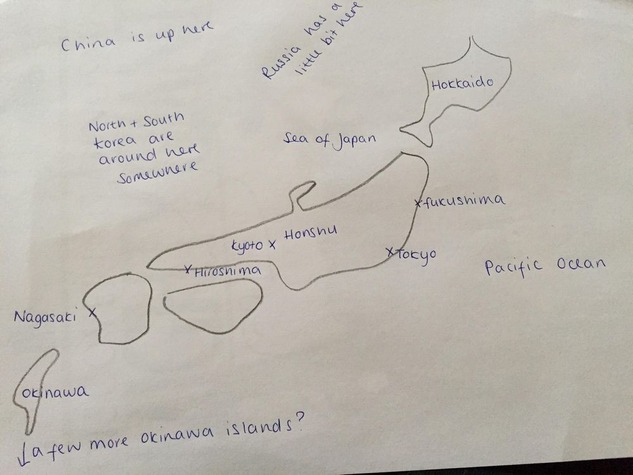 China is up here
Russia has a
little bit here
Hokkaido
North + South
Korea are
around here
somewhere
Sea of Japan
fukushima
Kyoto x Honshu
x Tokyo
Pacific Ocean
x Hiroshima
Nagasaki x
Okinawa
↓ a few more okinawa islands?